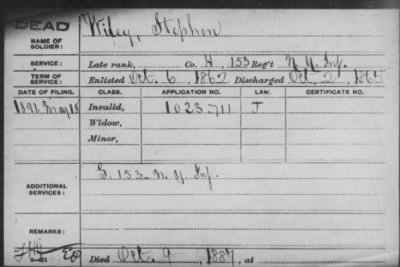 DEAD
NAME OF SOLDIER: Wiley, Stephen
SERVICE: Late rank, Co. H, 153 Reg't N.Y. Inf.
TERM OF SERVICE: Enlisted Oct. 6, 1862 Discharged Oct. 2, 1865
DATE OF FILING. CLASS. APPLICATION NO. LAW. CERTIFICATE NO.
1891 May 18 Invalid, 1023711 J
Widow,
Minor,
ADDITIONAL SERVICES: 153 N.Y. Inf.
REMARKS:
Died Oct. 9, 1887, at